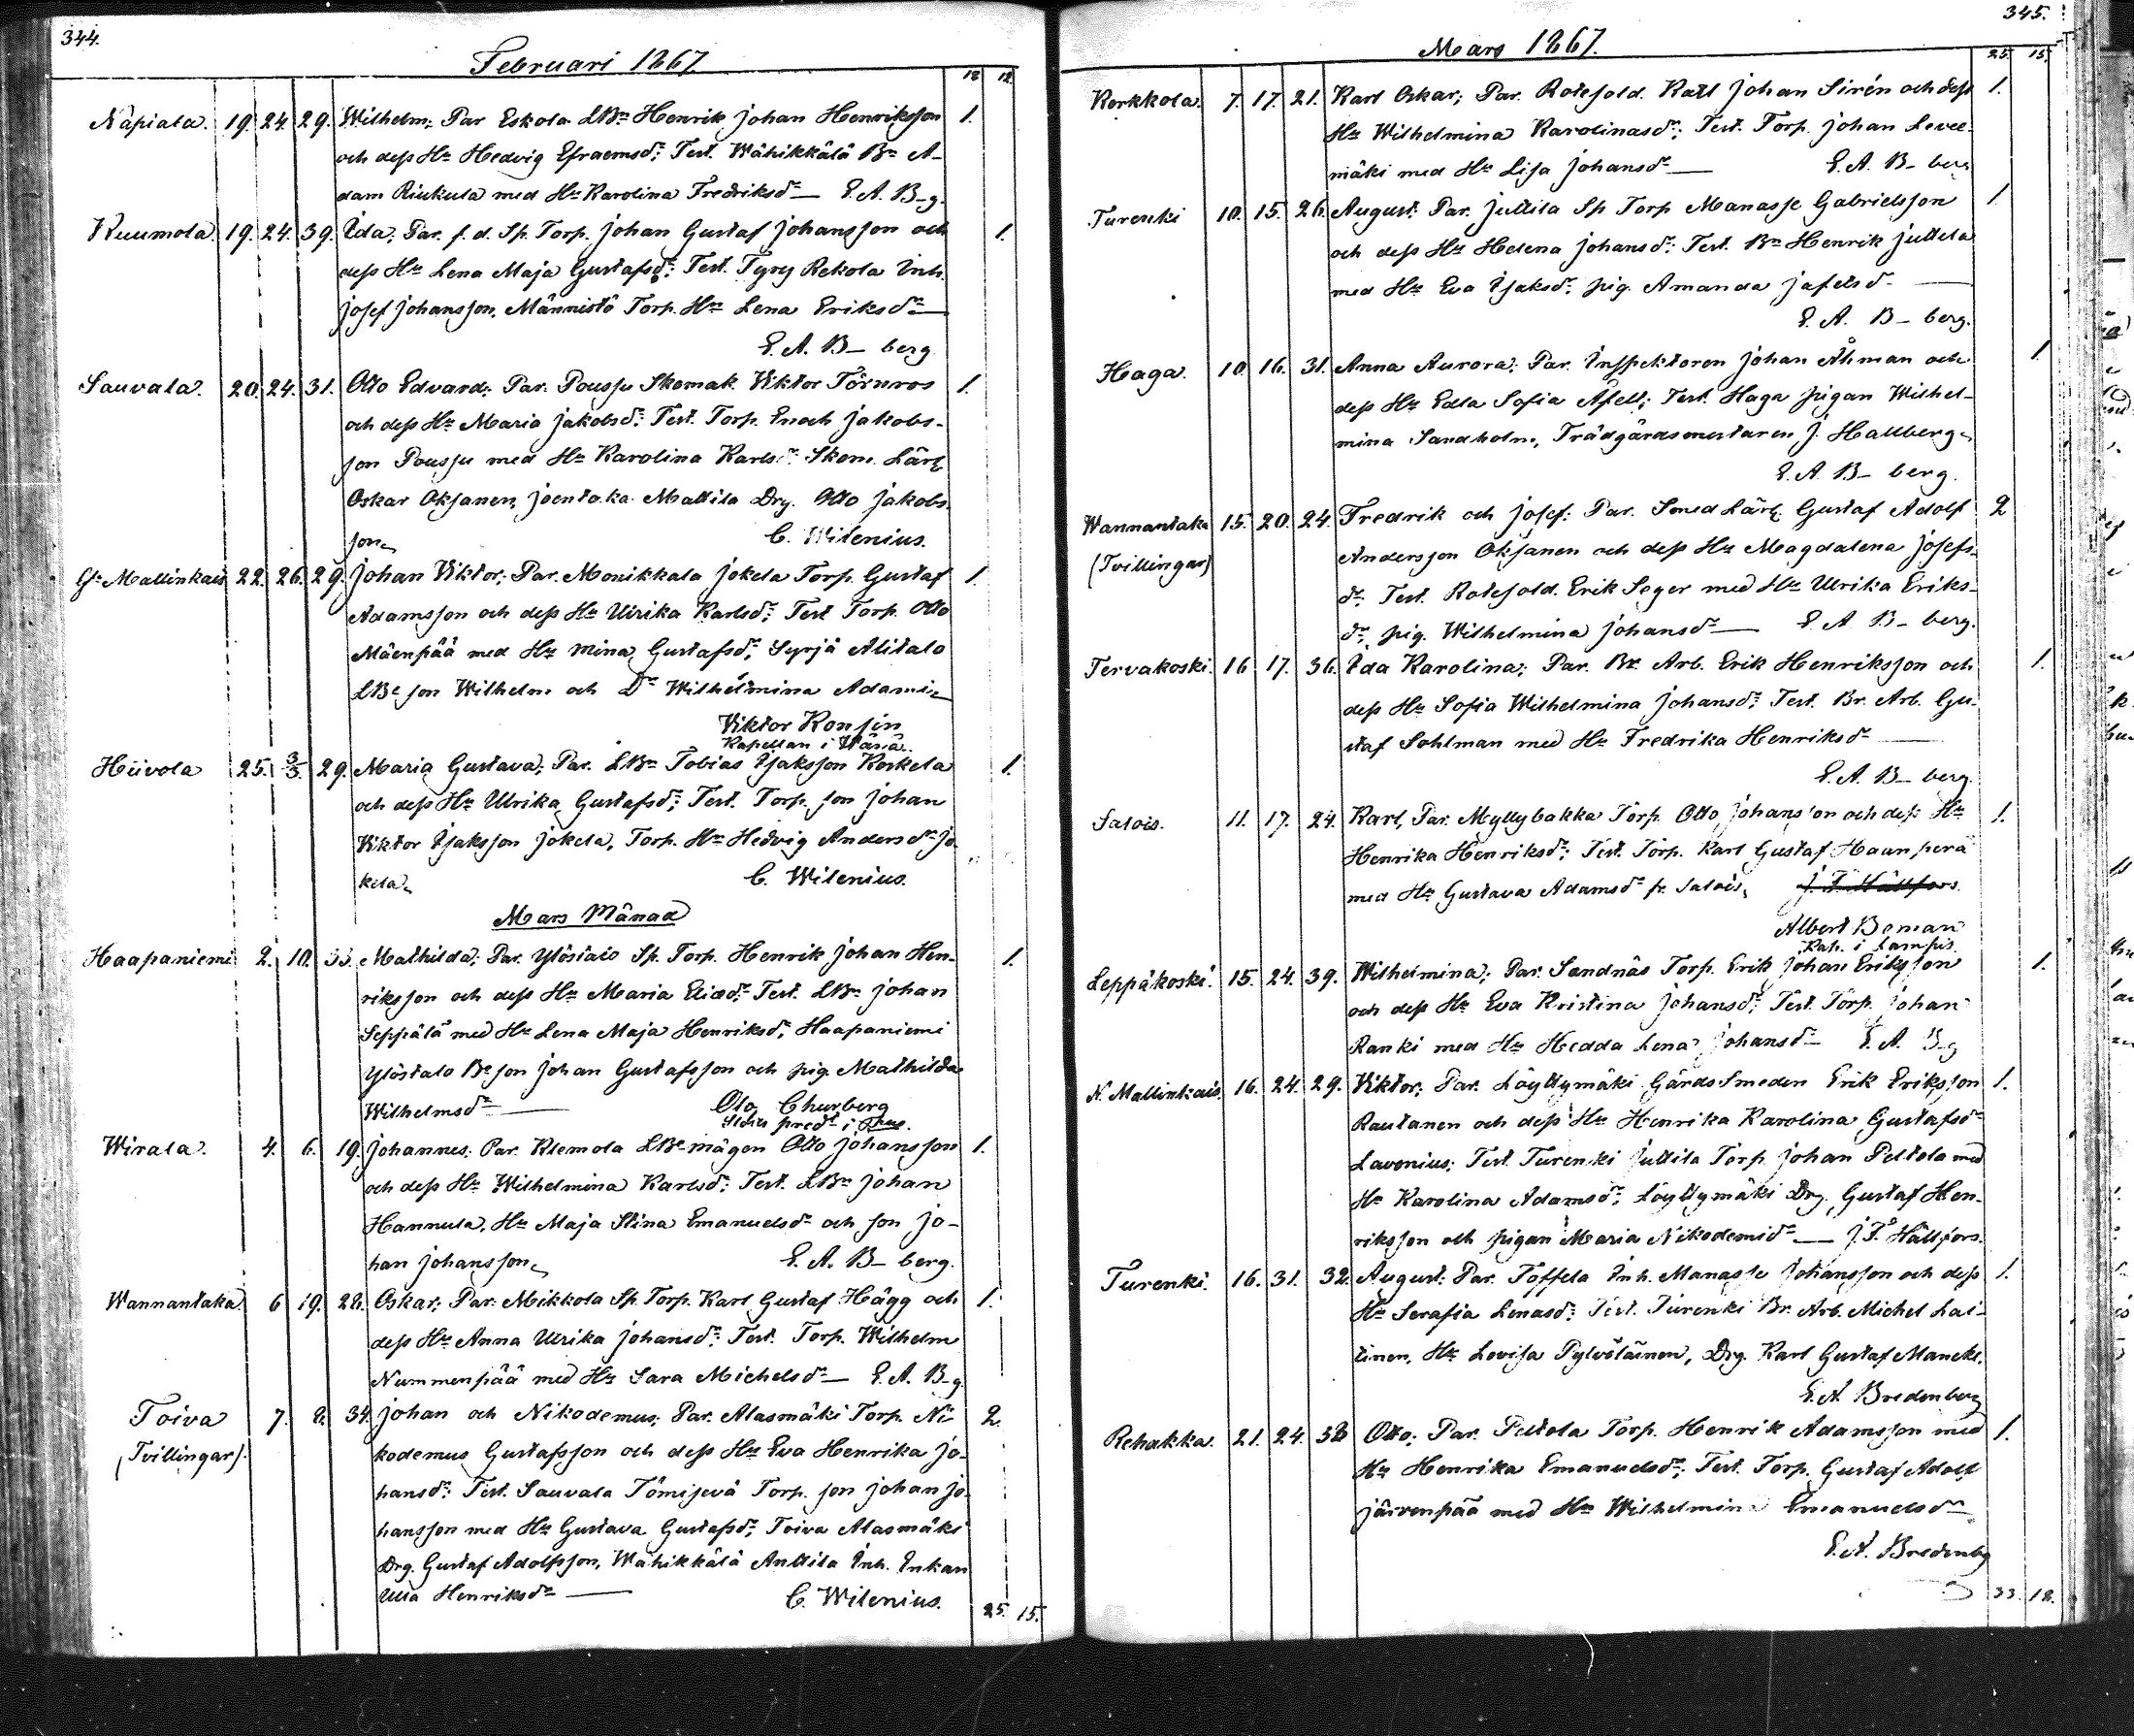 344.
Februari 1867.
18 12.
Näpiala. 19. 24. 29. Wilhelm; Par Eskola LBn Henrik Johan Henriksson 1.
och dess Hu Hedvig Efraemsdr; Test. Wähikkälä Bn A-
dam Riukula med Hu Karolina Fredriksdr— E. A. B-g.
Kuumola. 19. 24. 39. Ida; Par. f. d. Sp. Torp. Johan Gustaf Johansson och 1.
dess Hu Lena Maja Gustafsdr; Test. Tyry Rekola Inh.
Josef Johansson, Männistö Torp. Hu Lena Eriksdr—
E. A. B— berg
Sauvala. 20. 24. 31. Otto Edvard; Par. Poussu Skomak. Viktor Törnros 1.
och dess Hu Maria Jakobsdr; Test. Torp. Enoch Jakobs-
son Poussu med Hu Karolina Karlsdr Skom. Lärl
Oskar Oksanen, Joentaka Mattila Drg. Otto Jakobs-
son. C. Wilenius.
Gl Mallinkais 22. 26. 29. Johan Viktor; Par. Monikkala Jokela Torp. Gustaf 1.
Adamsson och dess Hu Ulrika Karlsdr; Test Torp. Otto
Mäenpää med Hu Mina Gustafsdr, Syrjä Alitalo
LBe son Wilhelm och Dr Wilhelmina Adami
Viktor Konsin
Kapellan i Wånå.
Hiivola 25. 3/3. 29. Maria Gustava; Par. LBn Tobias Isaksson Korkela 1.
och dess Hu Ulrika Gustafsdr; Test. Torp. son Johan
Viktor Isaksson Jokela, Torp. Hu Hedvig Andersdr Jo-
kela. C. Wilenius.
Mars Månad
Haapaniemi 2. 10. 33. Mathilda; Par. Ylöstalo Sp. Torp. Henrik Johan Hen- 1.
riksson och dess Hu Maria Eliædr; Test. LBn Johan
Seppälä med Hu Lena Maja Henriksdr, Haapaniemi
Ylöstalo Be son Johan Gustafsson och pig. Mathilda
Wilhelmsdr — Otto Churberg
Slotts pred. i Thus.
Wirala. 4. 6. 19. Johannes; Par. Klemola LBe mågen Otto Johansson 1.
och dess Hu Wilhelmina Karlsdr; Test. LBn Johan
Hannula, Hu Maja Stina Emanuelsdr och son Jo-
han Johansson. E. A. B— berg.
Wannantaka 6 19. 28. Oskar; Par. Mikkola Sp. Torp. Karl Gustaf Hägg och 1.
dess Hu Anna Ulrika Johansdr; Test. Torp. Wilhelm
Nummenpää med Hu Sara Michelsdr— E. A. B-g.
Toiva 7. 8. 34. Johan och Nikodemus; Par. Alasmäki Torp. Ni- 2.
(Tvillingar). kodemus Gustafsson och dess Hu Eva Henrika Jo-
hansdr; Test. Sauvala Tömisevä Torp. son Johan Jo-
hansson med Hu Gustava Gustafsdr, Toiva Alasmäki
Drg. Gustaf Adolfsson, Wähikkälä Anttila Inh. Enkan
Ulla Henriksdr — C. Wilenius.
25. 15.
345.
Mars 1867.
25. 15.
Kerkkola. 7. 17. 21. Karl Oskar; Par. Rotesold. Karl Johan Sirén och dess 1.
Hu Wilhelmina Karolinasdr; Test. Torp. Johan Levee-
mäki med Hu Lisa Johansdr — E. A. B— berg
Turenki 10. 15. 26. August; Par. Juttila Sp Torp Manasse Gabrielsson 1
och dess Hu Helena Johansdr; Test. Bn Henrik Juttila
med Hu Eva Isaksdr, pig. Amanda Jafetsdr —
E. A. B— berg.
Haga. 10. 16. 31. Anna Aurora; Par. Inspektoren Johan Åhman och 1.
dess Hu Edla Sofia Åfelt; Test. Haga pigan Wilhel-
mina Sandholm, Trädgårdsmästaren J. Hallberg.
E. A. B— berg.
Wannantaka 15. 20. 24. Fredrik och Josef; Par. Smed Lärl. Gustaf Adolf 2
(Tvillingar) Andersson Oksanen och dess Hu Magdalena Josefs-
dr; Test. Rotesold. Erik Seger med Hu Ulrika Eriks-
dr, pig. Wilhelmina Johansdr — E. A B— berg.
Tervakoski. 16 17. 36. Ida Karolina; Par. Br. Arb. Erik Henriksson och 1.
dess Hu Sofia Wilhelmina Johansdr; Test. Br. Arb. Gu-
staf Sohlman med Hu Fredrika Henriksdr —
E. A. B— berg.
Salois. 11. 17. 24. Karl, Par. Myllybakka Torp. Otto Johansson och dess Hu 1.
Henrika Henriksdr; Test. Torp. Karl Gustaf Haanperä
med Hu Gustava Adamsdr fr. Salois. J. F. Hällfors.
Albert Boman
Kap. i Lampis.
Leppäkoski. 15. 24. 39. Wilhelmina; Par. Sandnäs Torp. Erik Johan Eriksson 1.
och dess Hu Eva Kristina Johansdr; Test. Torp. Johan
Ranki med Hu Hedda Lena Johansdr— E. A. B-g
N. Mallinkais. 16. 24. 29. Viktor; Par. Löyttymäki Gårds Smeden Erik Eriksson 1.
Rautanen och dess Hu Henrika Karolina Gustafsdr
Lavonius; Test. Turenki Juttila Torp. Johan Peltola med
Hu Karolina Adamsdr; Löyttymäki Drg. Gustaf Hen-
riksson och pigan Maria Nikodemidr — J. F. Hällfors.
Turenki. 16. 31. 32. August; Par. Toffela Inh. Manasse Johansson och dess 1.
Hu Serafia Lenasdr; Test. Turenki Br. Arb. Michel Lai-
tinen, Hu Lovisa Pylvöläinen, Drg. Karl Gustaf Manckl.
E. A. Bredenberg
Rehakka. 21. 24. 38 Otto; Par. Peltola Torp. Henrik Adamsson med 1.
Hu Henrika Emanuelsdr; Test. Torp. Gustaf Adolf
Järvenpää med Hu Wilhelmina Emanuelsdr
E. A. Bredenbg
33. 18.